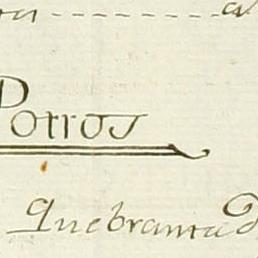 Porros
Quebranta